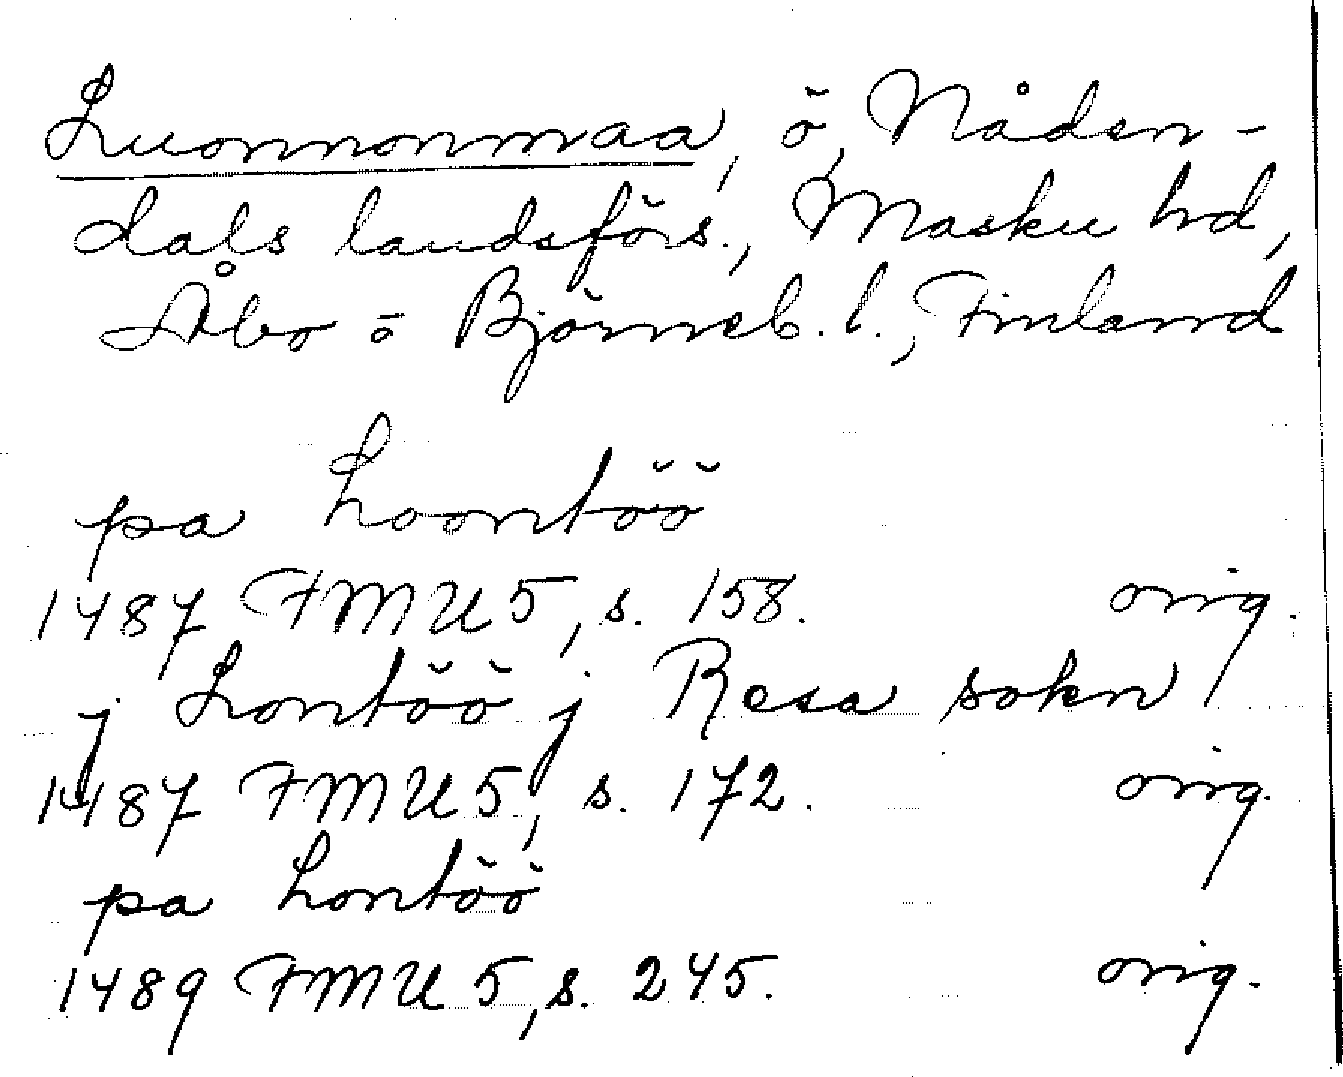 Luonnonmaa, ö, Nåden-
dals landsförs., Masku hd,
Åbo o Björneb. l., Finland
pa Loontöö
1487 FMU 5, s. 158. orig.
j Lontöö j Resa sokn
1487 FMU 5, s. 172. orig.
pa Lontöö
1489 FMU 5, s. 245. orig.